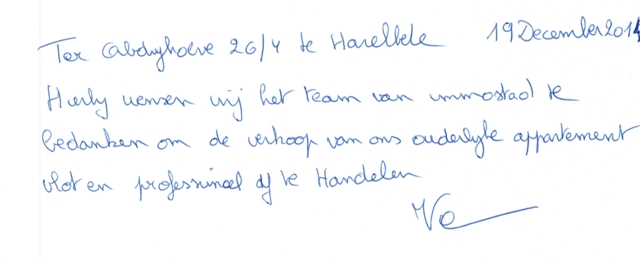 Ter Abdyhoeve 26/4 te Harelbeke 19 December 2014
Hierby wensen wij het team van immostad te
bedanken om de verkoop van ons ouderlyke appartement
vlot en professineel af te Handelen